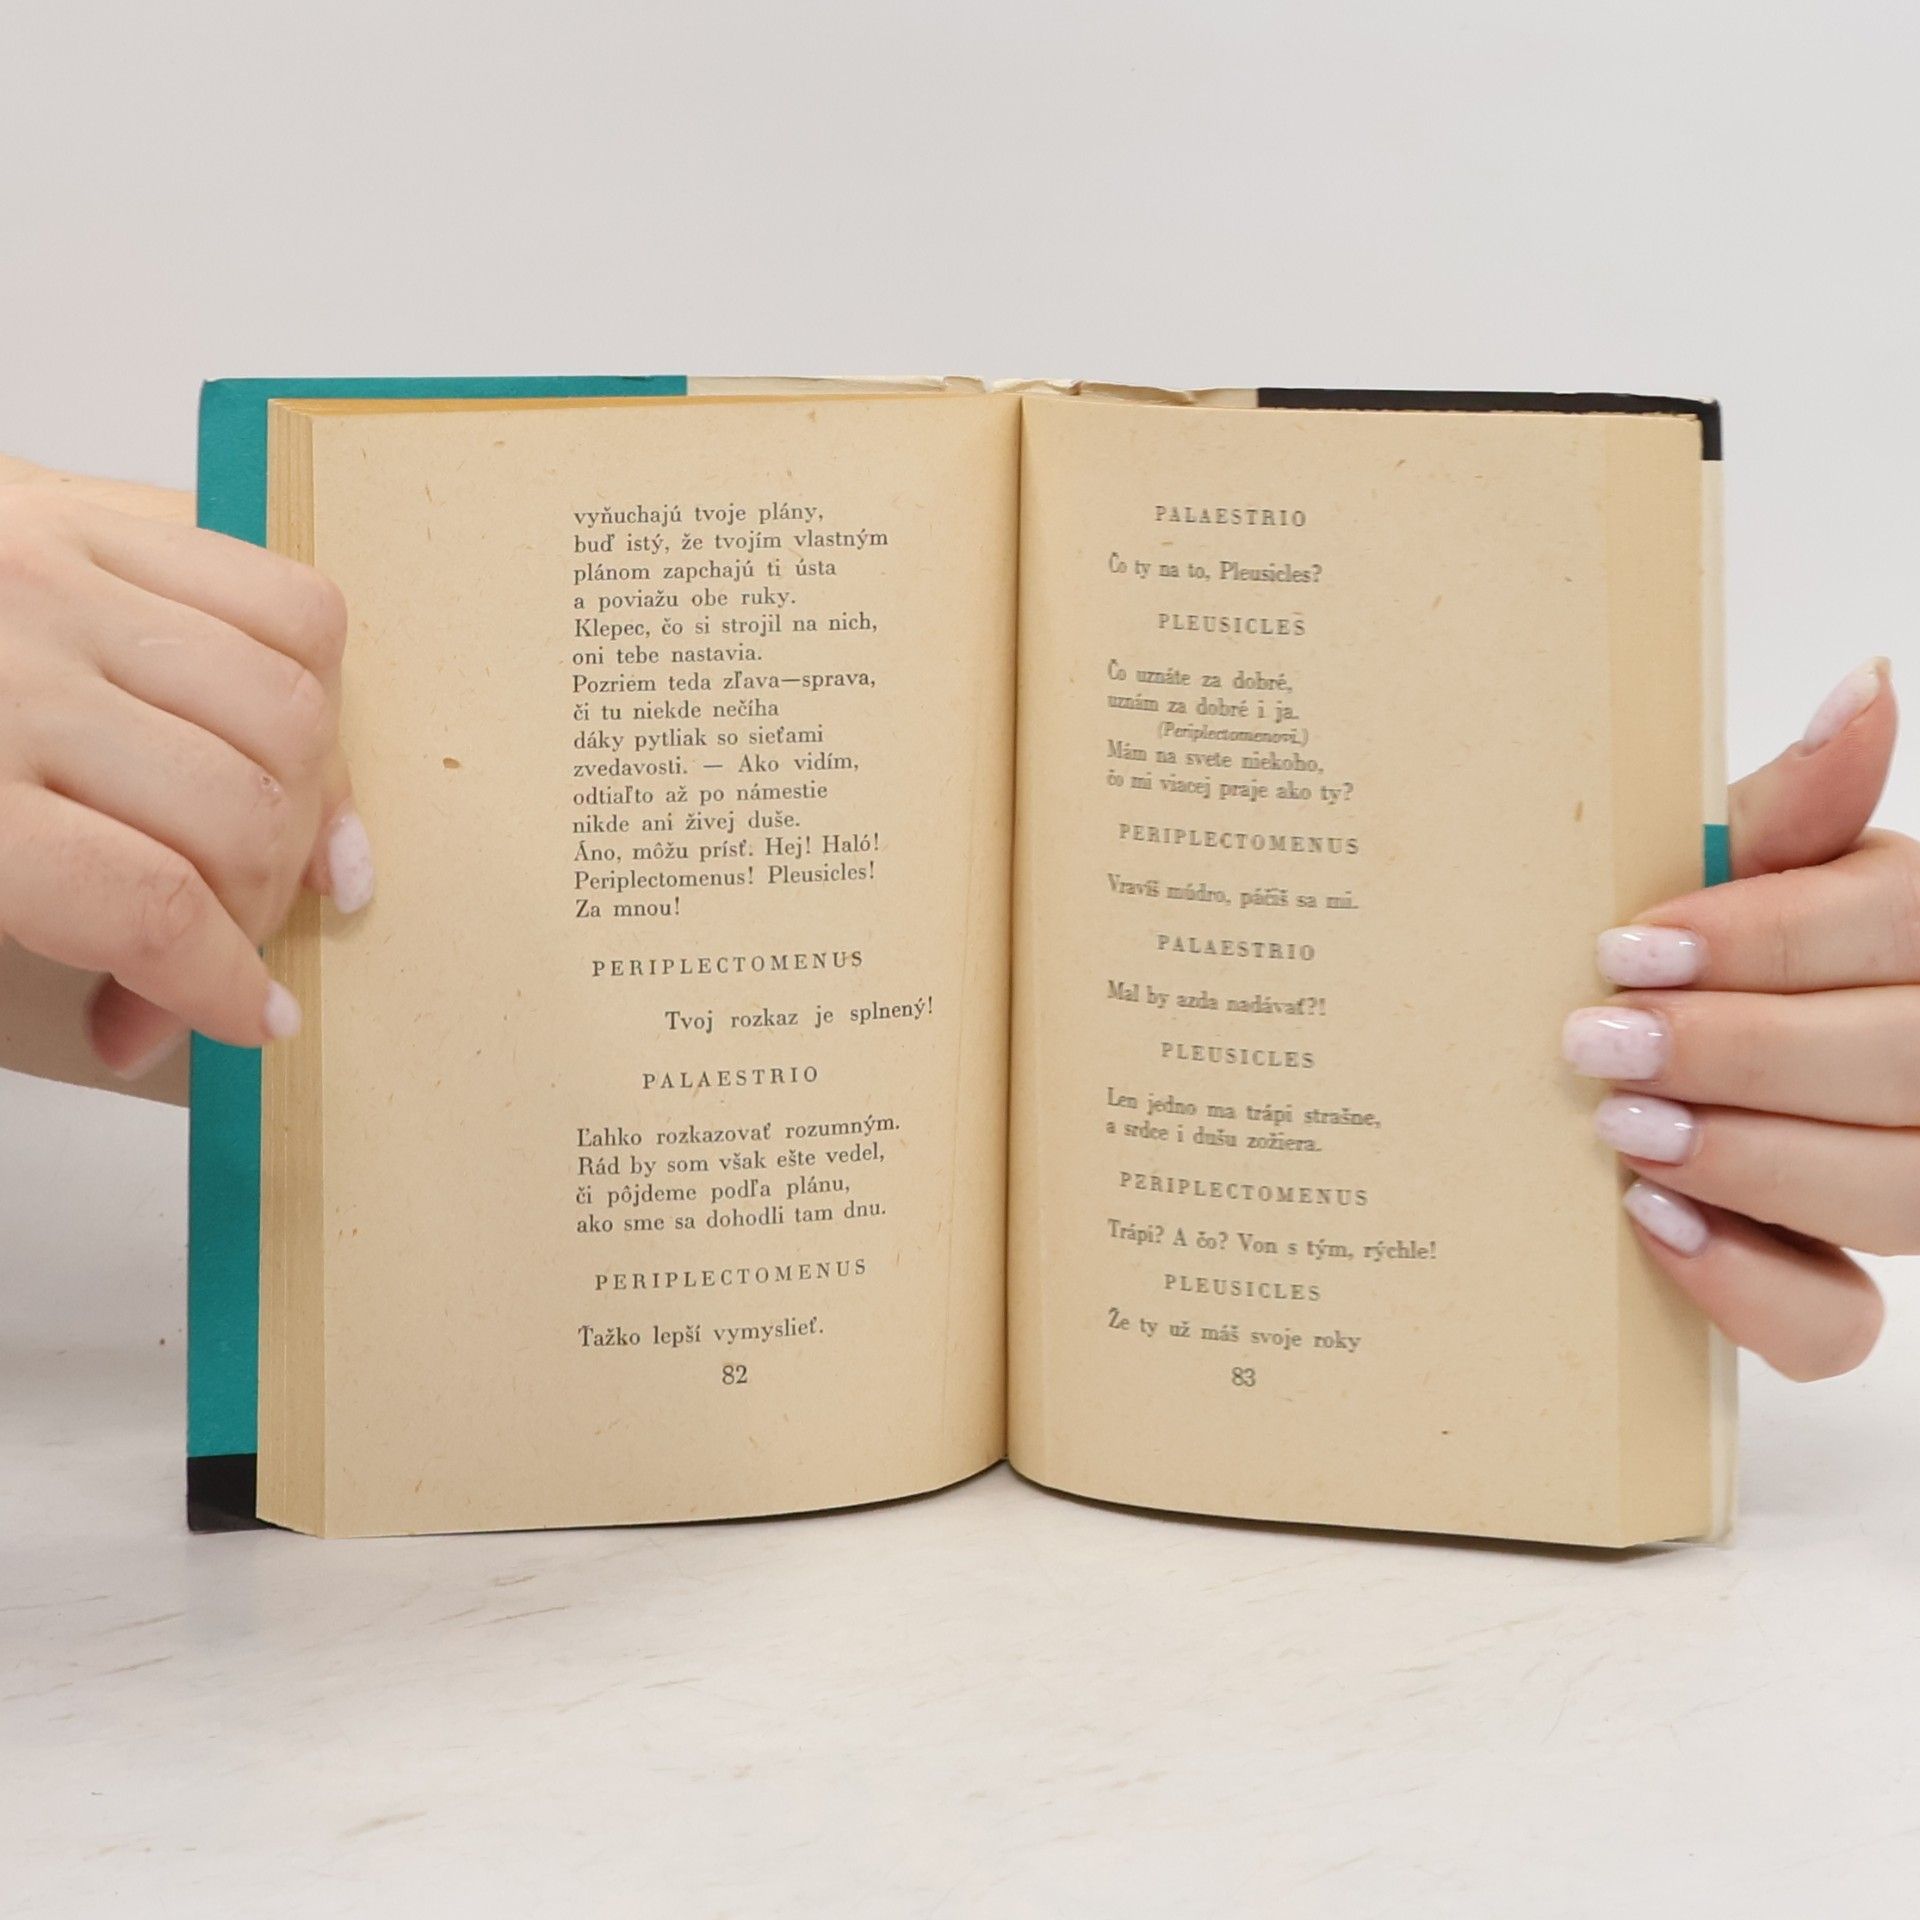 vyňuchajú tvoje plány,
buď istý, že tvojím vlastným
plánom zapchajú ti ústa
a poviažu obe ruky.
Klepec, čo si strojil na nich,
oni tebe nastavia.
Pozriem teda zľava—sprava,
či tu niekde nečíha
dáky pytliak so sieťami
zvedavosti. — Ako vidím,
odtiaľto až po námestie
nikde ani živej duše.
Áno, môžu prísť. Hej! Haló!
Periplectomenus! Pleusicles!
Za mnou!
PERIPLECTOMENUS
Tvoj rozkaz je splnený!
PALAESTRIO
Ľahko rozkazovať rozumným.
Rád by som však ešte vedel,
či pôjdeme podľa plánu,
ako sme sa dohodli tam dnu.
PERIPLECTOMENUS
Ťažko lepší vymyslieť.
82
PALAESTRIO
Čo ty na to, Pleusicles?
PLEUSICLES
Čo uznáte za dobré,
uznám za dobré i ja.
(Periplectomenovi.)
Mám na svete niekoho,
čo mi viacej praje ako ty?
PERIPLECTOMENUS
Vravíš múdro, páčiš sa mi.
PALAESTRIO
Mal by azda nadávať?!
PLEUSICLES
Len jedno ma trápi strašne,
a srdce i dušu zožiera.
PERIPLECTOMENUS
Trápi? A čo? Von s tým, rýchle!
PLEUSICLES
Že ty už máš svoje roky
83